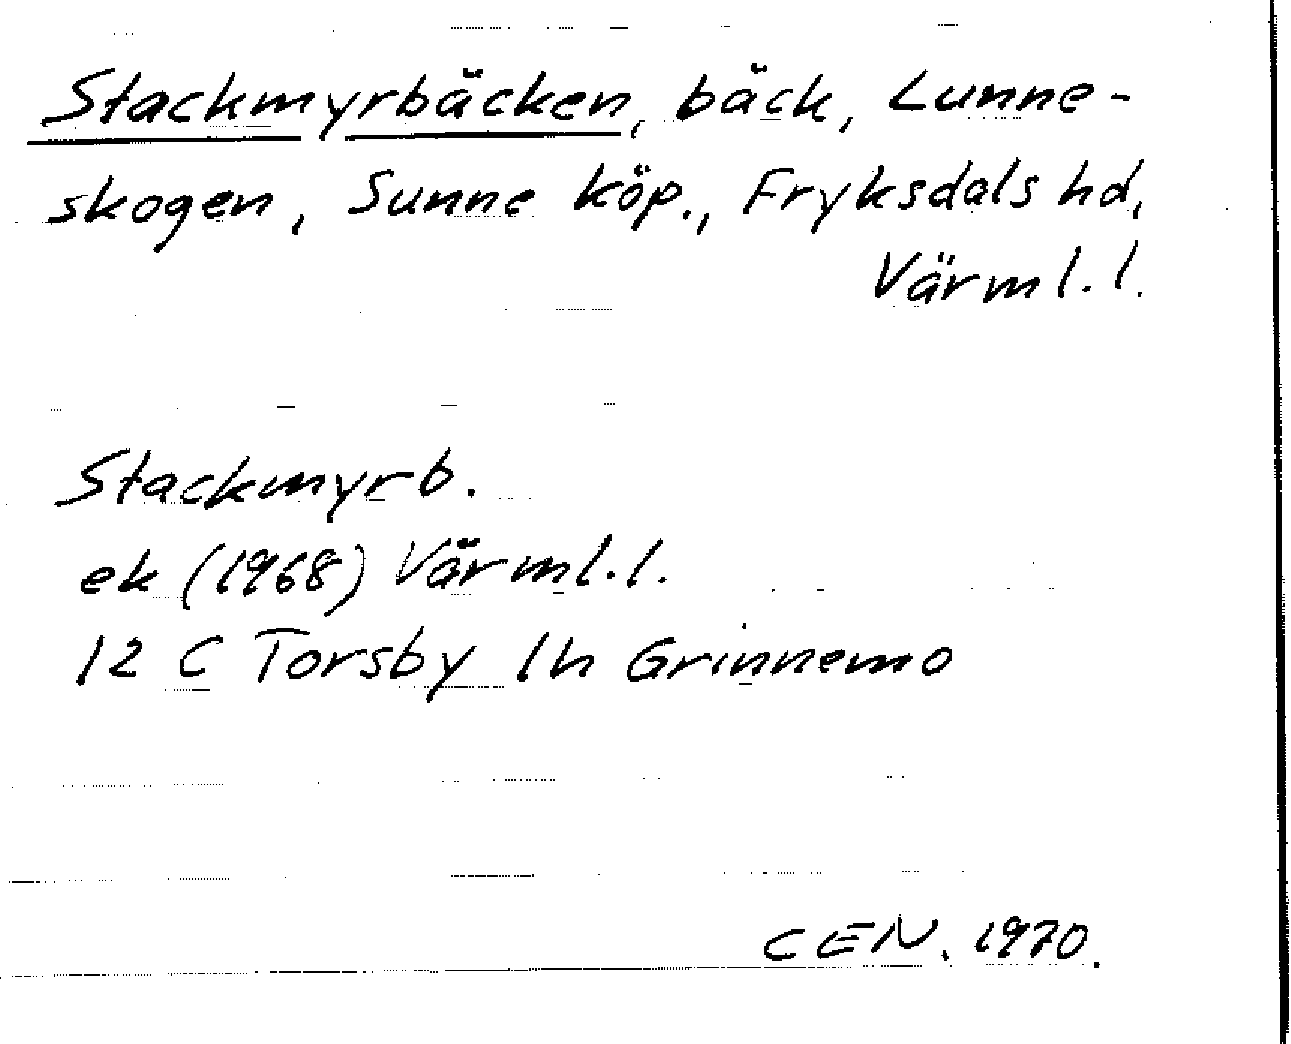 Stackmyrbäcken, bäck, Lunne-
skogen, Sunne köp., Fryksdals hd,
Värml. l.
Stackmyrb.
ek (1968) Värml. l.
12 C Torsby 1h Grinnemo
CEN. 1970.